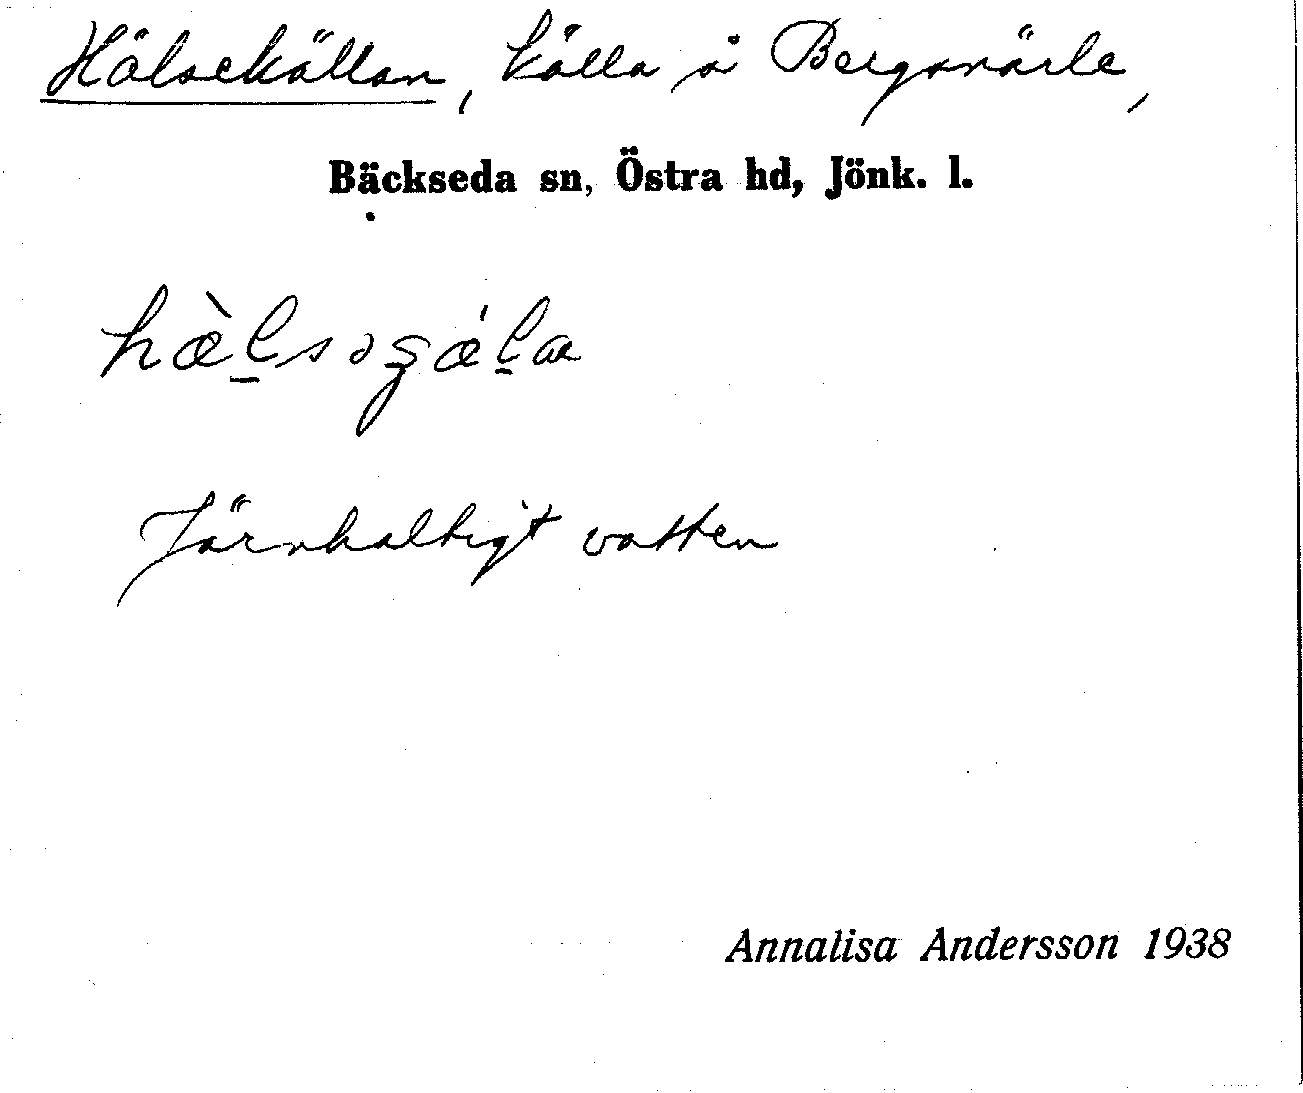 Hälsekällan, källa å Bergsnärle,
Bäckseda sn, Östra hd, Jönk. l.
Järnhaltigt vatten
Annalisa Andersson 1938